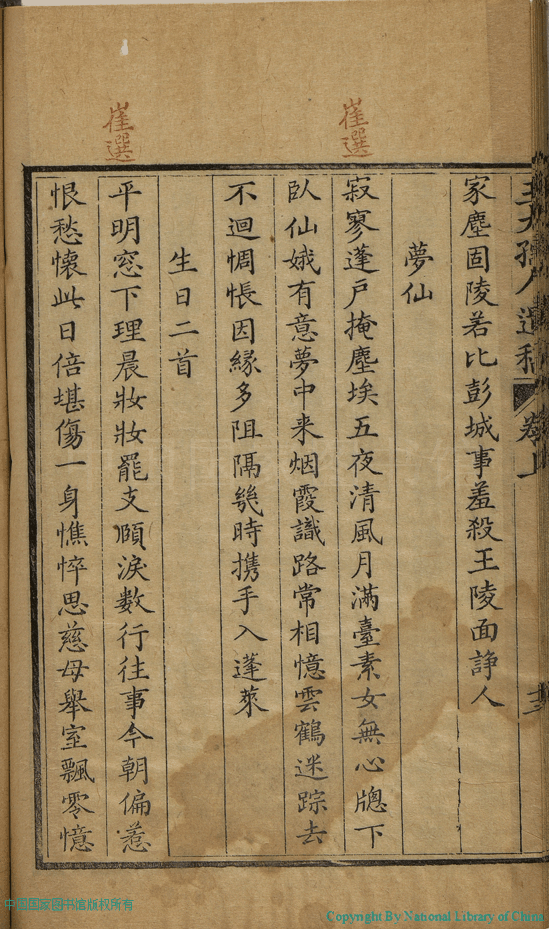 家塵固陵若比彭城事羞殺王陵面諍人
夢仙
寂寥蓬戸掩塵埃五夜清風月滿臺素女無心牕下
臥仙娥有意夢中来烟霞識路常相憶雲鶴迷踪去
不迴惆悵因緣多阻隔幾時携手入蓬萊
生日二首
平明窓下理晨妝妝罷支頤淚數行往事今朝偏惹
恨愁懷此日倍堪傷一身憔悴思慈母舉室飄零憶
崔選
崔選
中国国家图书馆版权所有
Copyright By National Library of China